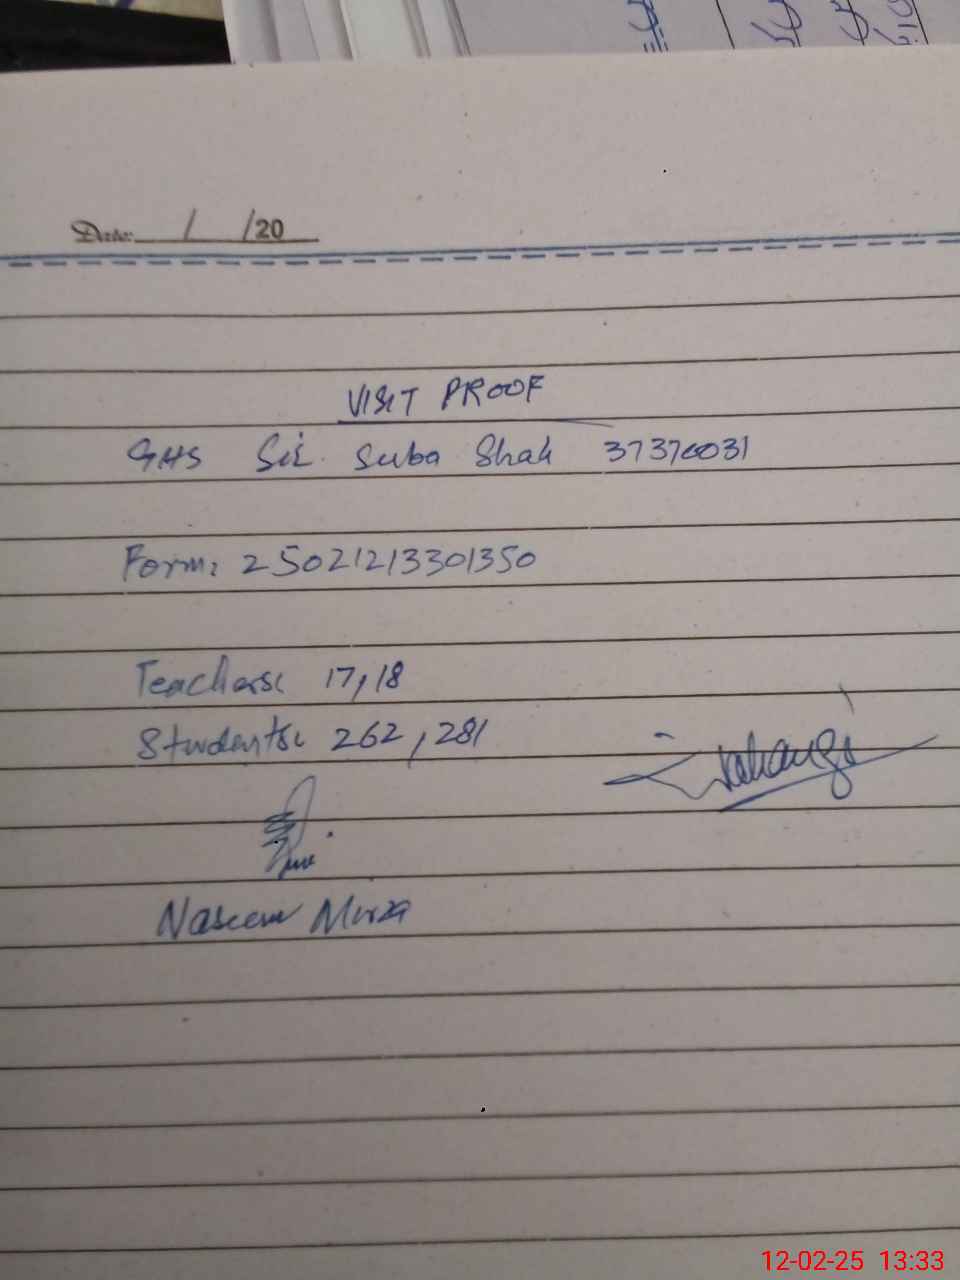 Date: / /20
VISIT PROOF
GHS Sir Suba Shah 37370031
Form: 25021213301350
Teachers: 17, 18
Students: 262, 281
Naseem Mirza
12-02-25 13:33